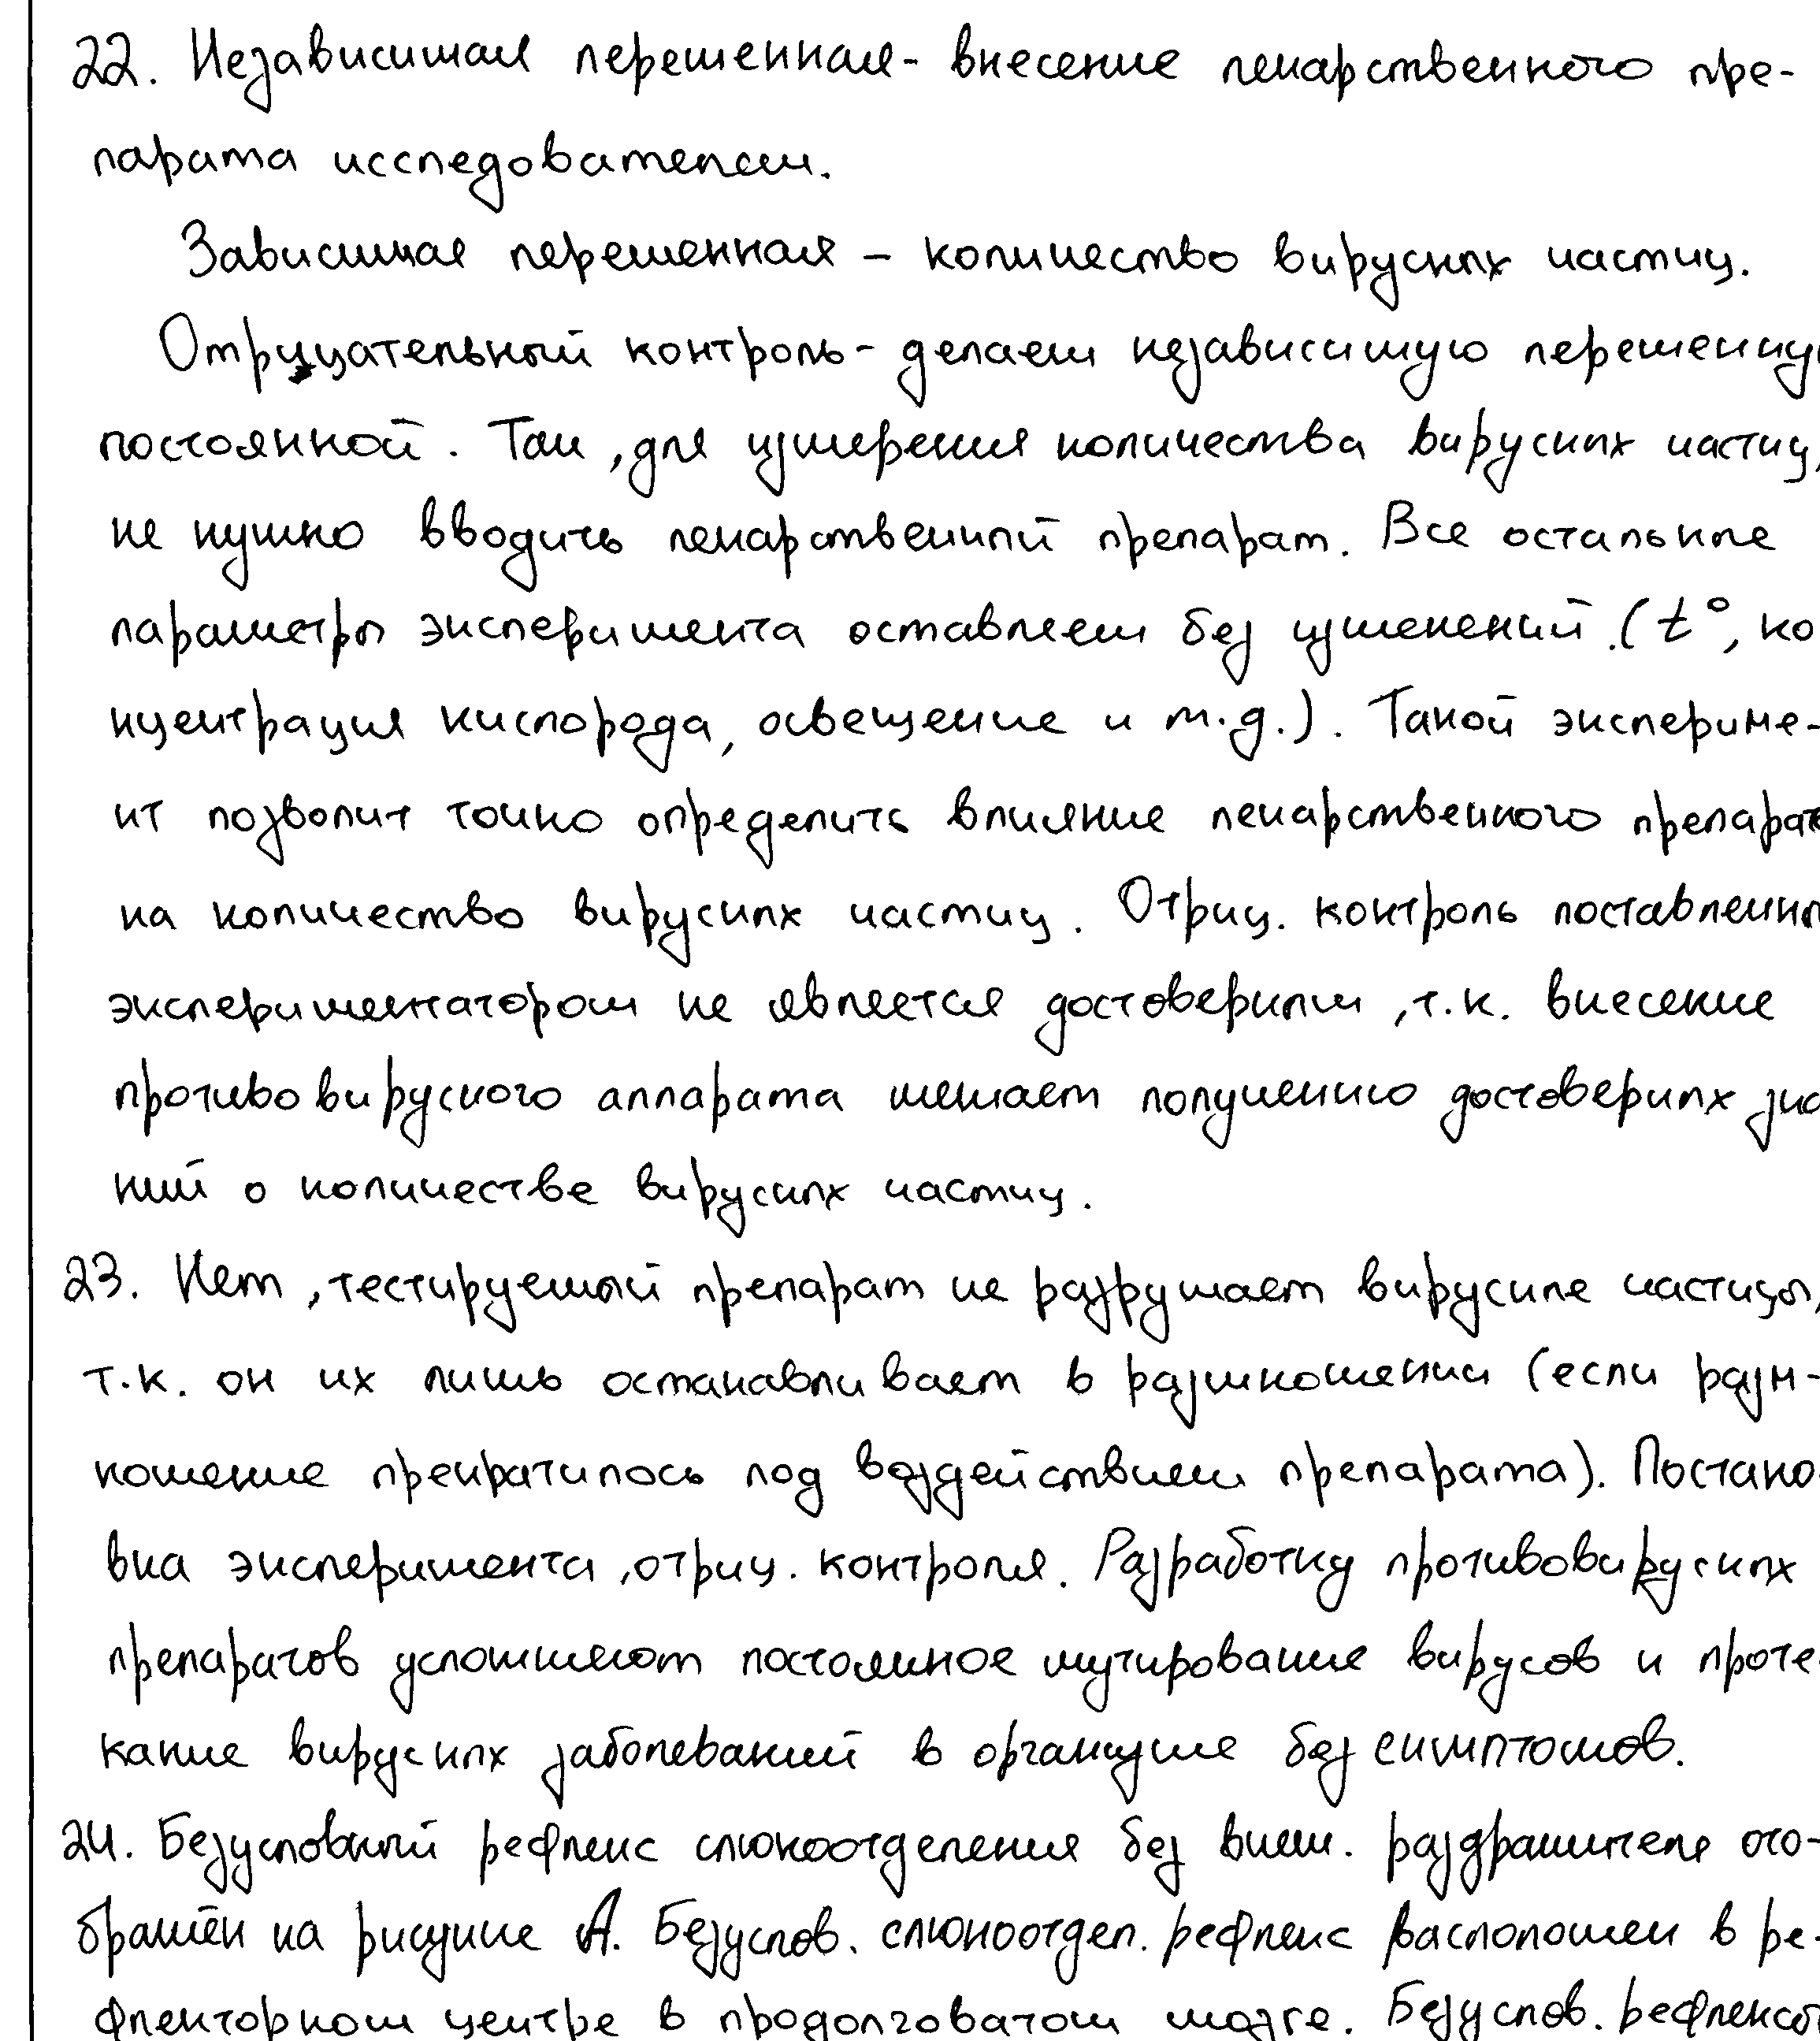 22. Независимая переменная - внесение лекарственного пре-
парата исследователем.
Зависимая переменная – количество вирусных частиц.
Отрицательный контроль - делаем независимую переменную
постоянной. Так, для измерения количества вирусных частиц,
не нужно вводить лекарственный препарат. Все остальные
параметры эксперимента оставляем без изменений. (t°, ко
нцентрация кислорода, освещение и т.д.). Такой экспериме-
нт позволит точно определить влияние лекарственного препарата
на количество вирусных частиц. Отриц. контроль поставленный
экспериментатором не является достоверным, т.к. внесение
противовирусного аппарата мешает получению достоверных зна
ний о количестве вирусных частиц.
23. Нет, тестируемый препарат не разрушает вирусные частицы,
т.к. он их лишь останавливает в размножении (если разм-
ножение прекратилось под воздействием препарата). Постано
вка эксперимента, отриц. контроля. Разработку противовирусных
препаратов усложняют постоянное мутирование вирусов и проте
кание вирусных заболеваний в организме без симптомов.
24. Безусловный рефлекс слюноотделения без внеш. раздражителя ото-
бражён на рисунке А. Безуслов. слюноотдел. рефлекс расположен в ре-
флекторном центре в продолговатом мозге. Безуслов. рефлексы